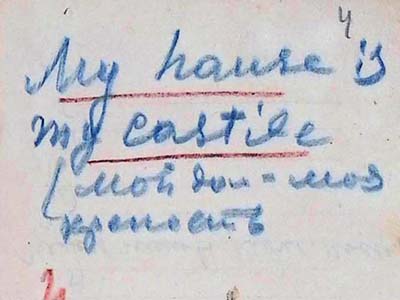 4
My hause is
my castile
(мой дом = моя
крепость